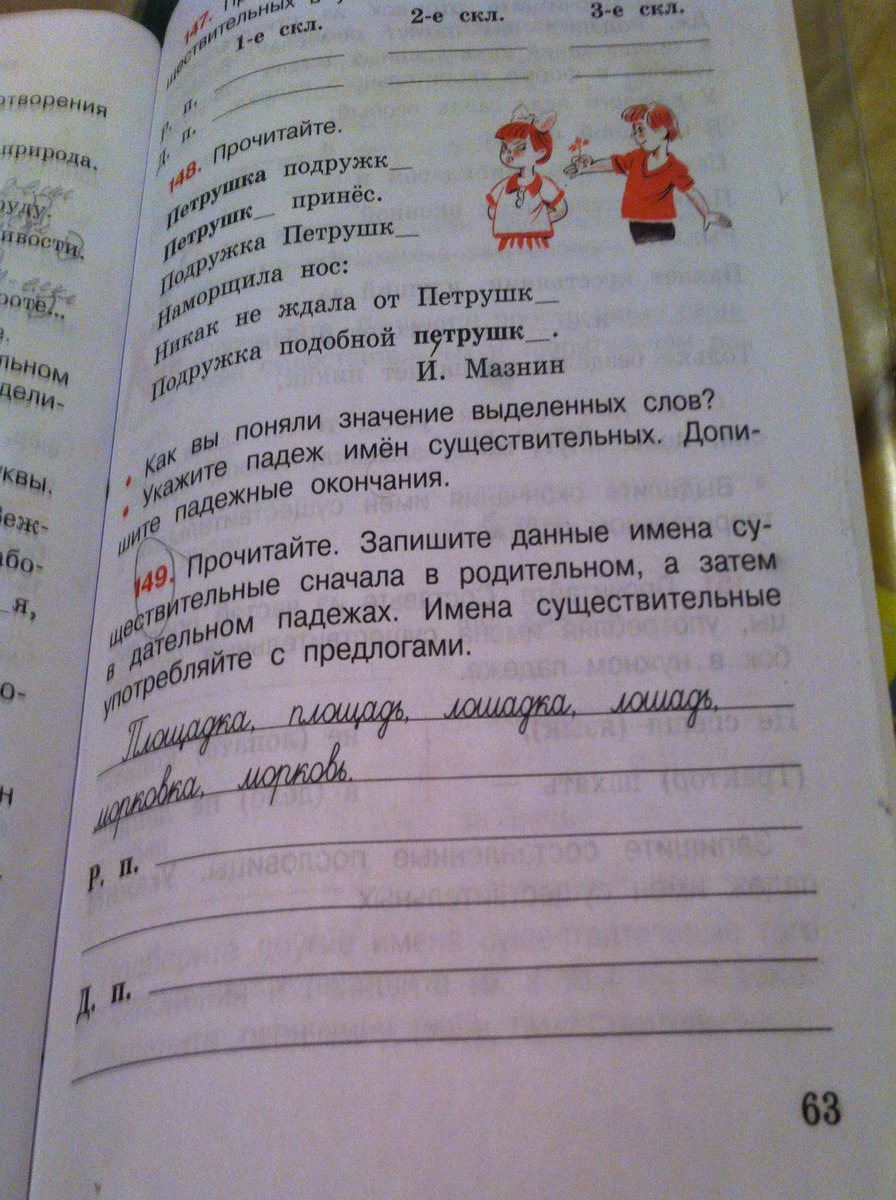 отворения
природа.
руду.
ивости.
роте!..
е.
льном
дели-
квы.
Веж-
або-
_я,
о-
н
147.
ществительных в
1-е скл. 2-е скл. 3-е скл.
Р. п.
Д. п.
148. Прочитайте.
Петрушка подружк_
Петрушк_ принёс.
Подружка Петрушк_
Наморщила нос:
Никак не ждала от Петрушк_
Подружка подобной петрушк_.
И. Мазнин
• Как вы поняли значение выделенных слов?
• Укажите падеж имён существительных. Допи-
шите падежные окончания.
149. Прочитайте. Запишите данные имена су-
ществительные сначала в родительном, а затем
в дательном падежах. Имена существительные
употребляйте с предлогами.
Площадка, площадь, лошадка, лошадь,
морковка, морковь.
Р. п.
Д. п.
63